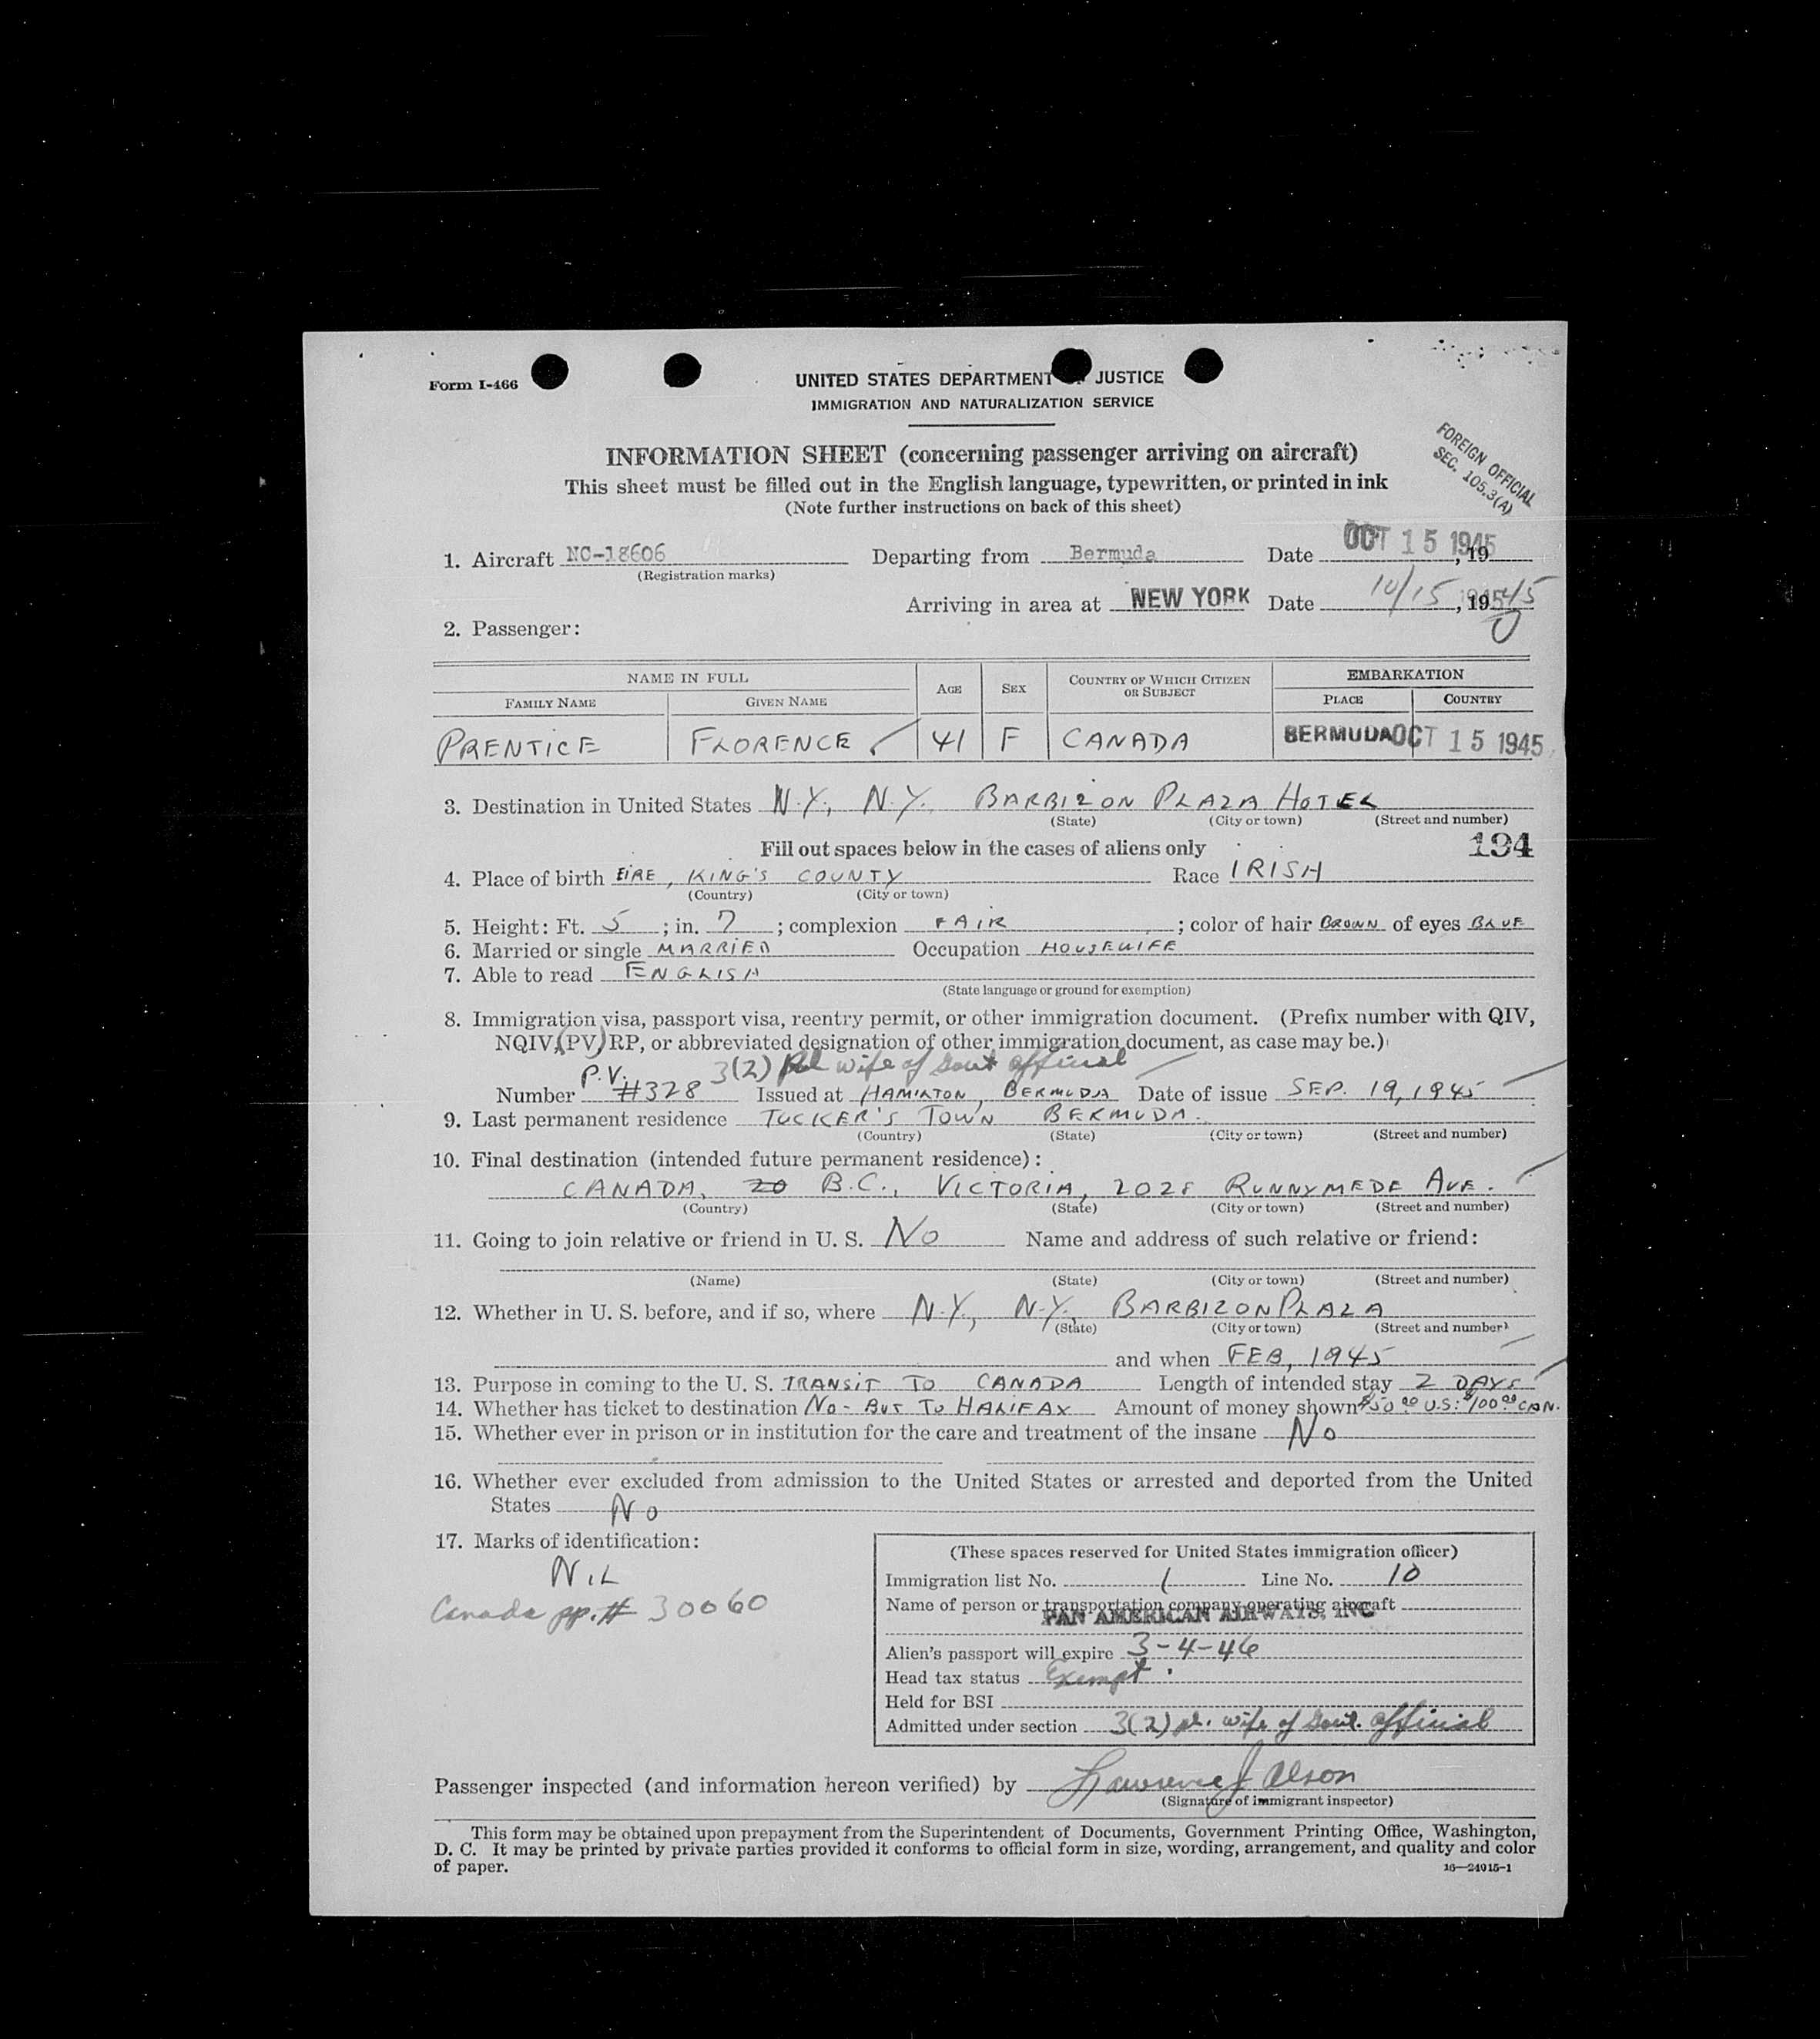 Form I-466
UNITED STATES DEPARTMENT JUSTICE
IMMIGRATION AND NATURALIZATION SERVICE
INFORMATION SHEET (concerning passenger arriving on aircraft)
This sheet must be filled out in the English language, typewritten, or printed in ink
(Note further instructions on back of this sheet)
FOREIGN OFFICIAL
SEC. 105.3(A)
1. Aircraft NC-18606 Departing from Bermuda Date OCT 15 1945, 19
(Registration marks)
Arriving in area at NEW YORK Date 10/15, 1945
2. Passenger:
NAME IN FULL AGE SEX COUNTRY OF WHICH CITIZEN OR SUBJECT EMBARKATION
FAMILY NAME GIVEN NAME PLACE COUNTRY
PRENTICE FLORENCE 41 F CANADA BERMUDA OCT 15 1945
3. Destination in United States N.Y., N.Y. BARBIZON PLAZA HOTEL
(State) (City or town) (Street and number)
Fill out spaces below in the cases of aliens only 194
4. Place of birth EIRE, KING'S COUNTY Race IRISH
(Country) (City or town)
5. Height: Ft. 5; in. 7; complexion FAIR; color of hair BROWN of eyes BLUE
6. Married or single MARRIED Occupation HOUSEWIFE
7. Able to read ENGLISH
(State language or ground for exemption)
8. Immigration visa, passport visa, reentry permit, or other immigration document. (Prefix number with QIV,
NQIV, (PV) RP, or abbreviated designation of other immigration document, as case may be.)
3(2) wife of Govt official
Number P.V. #328 Issued at HAMILTON, BERMUDA Date of issue SEP. 19, 1945
9. Last permanent residence TUCKER'S TOWN BERMUDA.
(Country) (State) (City or town) (Street and number)
10. Final destination (intended future permanent residence):
CANADA, 20 B.C., VICTORIA, 2028 RUNNYMEDE AVE.
(Country) (State) (City or town) (Street and number)
11. Going to join relative or friend in U. S. NO Name and address of such relative or friend:
(Name) (State) (City or town) (Street and number)
12. Whether in U. S. before, and if so, where N.Y., N.Y., BARBIZON PLAZA
(State) (City or town) (Street and number)
and when FEB, 1945
13. Purpose in coming to the U. S. TRANSIT TO CANADA Length of intended stay 2 DAYS
14. Whether has ticket to destination NO - BUT TO HALIFAX Amount of money shown $50.00 U.S: $100.00 CAN.
15. Whether ever in prison or in institution for the care and treatment of the insane NO
16. Whether ever excluded from admission to the United States or arrested and deported from the United
States NO
17. Marks of identification:
NIL
Canada pp. # 30060
(These spaces reserved for United States immigration officer)
Immigration list No. 1 Line No. 10
Name of person or transportation company operating aircraft
PAN AMERICAN AIRWAYS, INC
Alien's passport will expire 3-4-46
Head tax status Exempt.
Held for BSI
Admitted under section 3(2) wife of Govt. official
Passenger inspected (and information hereon verified) by Lawrence J Olson
(Signature of immigrant inspector)
This form may be obtained upon prepayment from the Superintendent of Documents, Government Printing Office, Washington,
D. C. It may be printed by private parties provided it conforms to official form in size, wording, arrangement, and quality and color
of paper. 16—24915-1